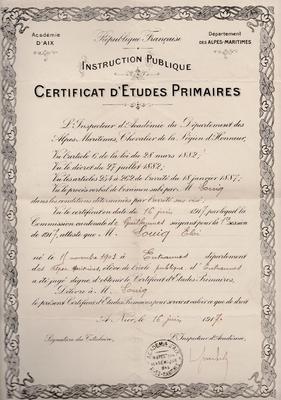 Académie
D'AIX
République Française
Département
DES ALPES-MARITIMES
INSTRUCTION PUBLIQUE
CERTIFICAT D'ÉTUDES PRIMAIRES
L'Inspecteur d'Académie du Département des
Alpes Maritimes, Chevalier de la Légion d'Honneur,
Vu l'article 6 de la loi du 28 mars 1882;
Vu le décret du 27 juillet 1882;
Vu les articles 254 à 262 de l'arrêté du 18 janvier 1887;
Vu le procès verbal de l'examen subi par M
dans les conditions déterminées par l'arrêté sus visé;
Vu le certificat en date du 16 juin 1917 par lequel la
Commission cantonale de Guillaumes siégeant pour la session
de 1917, atteste que M.
né le 15 novembre 1903 à Entraunes département
des Alpes Maritimes, élève de l'école publique d'Entraunes
a été jugé digne d'obtenir le Certificat d'Études Primaires,
Délivre à M.
le présent Certificat d'Études Primaires pour servir et valoir ce que de droit
A Nice, le 16 juin 1917.
Signature du Titulaire,
L'Inspecteur d'Académie,